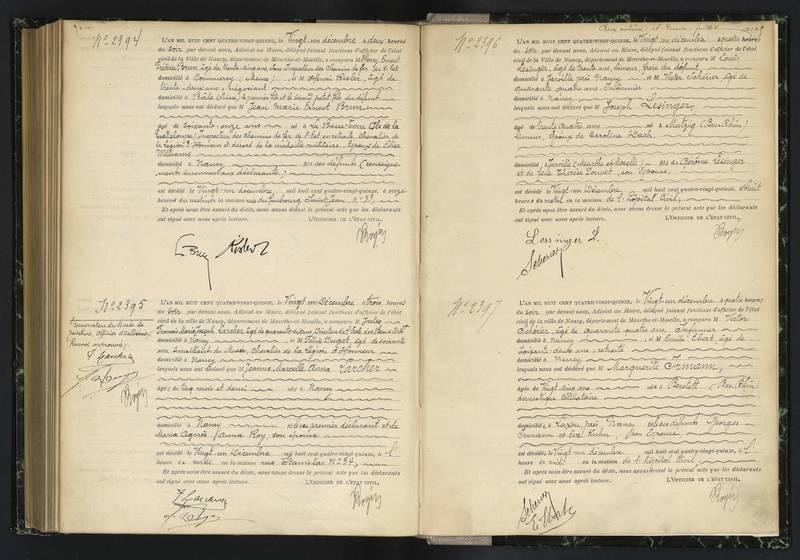 No. 2394
L'AN MIL HUIT CENT QUATRE-VINGT-QUINZE, le Vingt-un décembre à deux heures
du soir, par devant nous, Adjoint au Maire, délégué faisant fonctions d'officier de l'état
civil de la Ville de Nancy, département de Meurthe-et-Moselle, a comparu M Henry Ernest
Frédéric Brun, âgé de trente-cinq ans, Sous Inspecteur des Chemins de fer de l'Est
domicilié à Commercy (Meuse), et M Henri Risler, âgé de
trente-deux ans, négociant
domicilié à Bâle (Suisse) le premier fils et le second petit-fils du défunt
lesquels nous ont déclaré que M Jean Marie Ernest Brun
âgé de soixante-onze ans né à La Basse-Terre (Ile de la
Guadeloupe), Inspecteur des chemins de fer de l'Est, en retraite, Chevalier de
la Légion d'Honneur et décoré de la médaille militaire, Epoux de Elise
Williams
domicilié à Nancy fils des défunts (renseigne-
ments inconnus aux déclarants)
est décédé le Vingt-un décembre, mil huit cent quatre-vingt-quinze, à onze
heures du matin en la maison rue du faubourg Saint-Jean, No. 39,
Et après nous être assuré du décès, nous avons dressé le présent acte que les déclarants
ont signé avec nous après lecture. L'OFFICIER DE L'ÉTAT CIVIL,
E. Brun Risler
No. 2395
Conservateur du Musée de
peinture, Officier d'Académie,
Renvoi approuvé.
L'AN MIL HUIT CENT QUATRE-VINGT-QUINZE, le Vingt-un Décembre à trois heures
du soir par devant nous, Adjoint au Maire, délégué faisant fonctions d'officier de l'état
civil de la ville de Nancy, département de Meurthe-et-Moselle, a comparu M Jules
François Marie Joseph Larcher, âgé de quarante-six ans, Directeur de l'Ecole des Beaux-Arts
domicilié à Nancy, et M Félix Dugat, âgé de soixante
ans, surveillant du Musée, Chevalier de la Légion d'Honneur
domicilié à Nancy
lesquels nous ont déclaré que Jeanne Marcelle Anna Larcher
âgée de cinq mois et demi née à Nancy
domiciliée à Nancy fille du premier déclarant et de
Maria Agnès Jeanne Roy, son épouse
est décédée le Vingt-un Décembre mil huit cent quatre-vingt-quinze, à
heure de midi en la maison rue Stanislas No. 34,
Et après nous être assuré du décès, nous avons dressé le présent acte que les déclarants
ont signé avec nous après lecture. L'OFFICIER DE L'ÉTAT CIVIL,
No. 2396
L'AN MIL HUIT CENT QUATRE-VINGT-QUINZE, le Vingt-un décembre à quatre heures
du soir, par devant nous, Adjoint au Maire, délégué faisant fonctions d'officier de l'état
civil de la Ville de Nancy, département de Meurthe-et-Moselle, a comparu M Louis
Lesinger, âgé de trente ans, limeur, frère du défunt
domicilié à Jarville près Nancy et M Victor Schérier âgé de
quarante quatre ans, Infirmier
domicilié à Nancy
lesquels nous ont déclaré que M Joseph Lesinger,
âgé de trente quatre ans né à Mutzig (Bas-Rhin)
limeur, époux de Caroline Dach,
domicilié à Jarville (Meurthe et Moselle) fils de Gérôme Lesinger
et de feue Thérèse Pouvet, son Epouse,
est décédé le Vingt-un Décembre, mil huit cent quatre-vingt-quinze, à huit
heures du matin en la maison de l'hôpital Civil;
Et après nous être assuré du décès, nous avons dressé le présent acte que les déclarants
ont signé avec nous après lecture. L'OFFICIER DE L'ÉTAT CIVIL,
Lessinger L.
Scherier
No. 2397
L'AN MIL HUIT CENT QUATRE-VINGT-QUINZE, le Vingt-un décembre à quatre heures
du soir, par devant nous, Adjoint au Maire, délégué faisant fonctions d'officier de l'état
civil de la ville de Nancy, département de Meurthe-et-Moselle, a comparu M Victor
Schérier, âgé de quarante quatre ans, infirmier
domicilié à Nancy, et M Emile Ebert, âgé de
soixante-deux ans, retraité
domicilié à Nancy
lesquels nous ont déclaré que M Marguerite Irmann,
âgée de Vingt-cinq ans née à Berstett (Bas-Rhin)
domestique célibataire
domiciliée à Laxou, près Nancy fille des défunts Georges
Irmann et Eva Kuhn, son Epouse
est décédée le Vingt-un décembre mil huit cent quatre-vingt-quinze, à
heure de midi en la maison de l'hôpital Civil
Et après nous être assuré du décès, nous avons dressé le présent acte que les déclarants
ont signé avec nous après lecture. L'OFFICIER DE L'ÉTAT CIVIL,
Scherier
E. Ebert